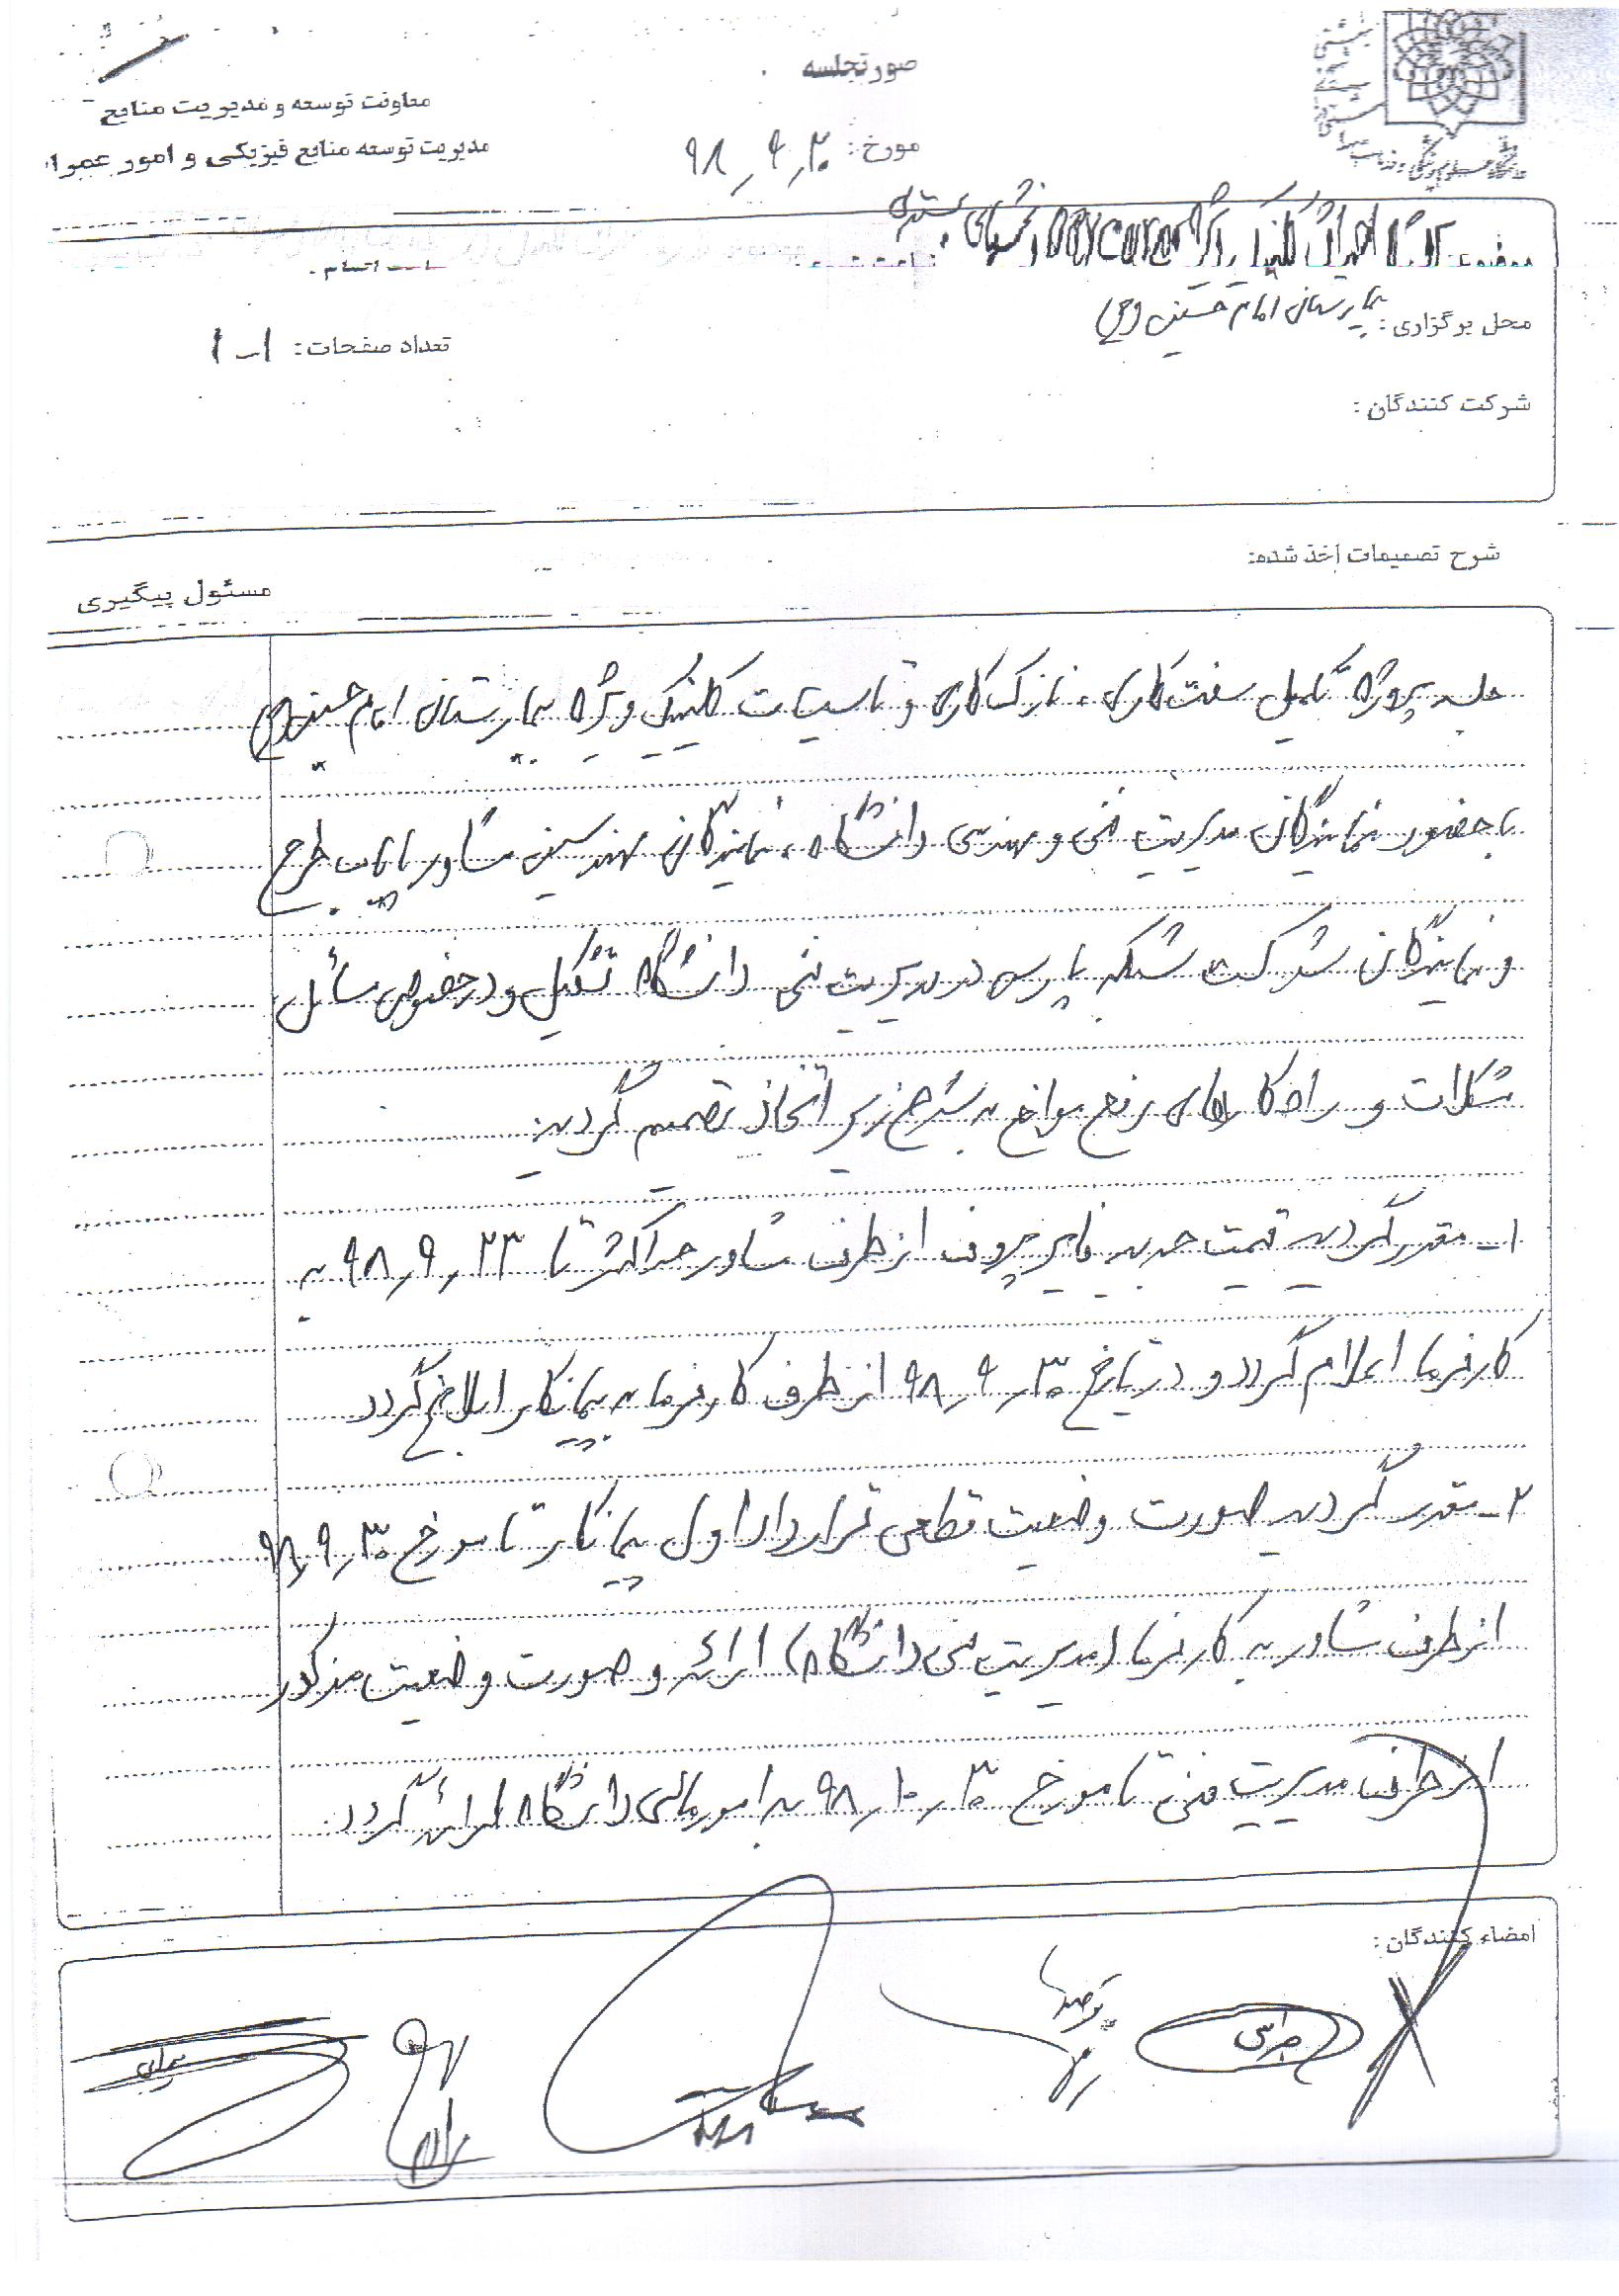 صورتجلسه
معاونت توسعه و مدیریت منابع
مدیریت توسعه منابع فیزیکی و امور عمرا
مورخ: ۹۸٫۹٫۲۰
موضوع: day care بخشهای بستری
محل برگزاری: بیمارستان امام حسین (ع)
تعداد صفحات: ۱-۱
شرکت کنندگان:
شرح تصمیمات اخذ شده:
مسئول پیگیری
جلسه پروژه تکمیل سفت کاری، نازک کاری و تاسیسات کلینیک ویژه بیمارستان امام حسین (ع)
با حضور نمایندگان مدیریت فنی و مهندسی دانشگاه، نمایندگان مهندسین مشاور طرح
و نمایندگان شرکت شبکه پارس در مدیریت فنی دانشگاه تشکیل و در خصوص مسائل
مشکلات و راه کارهای رفع موانع به شرح زیر اتخاذ تصمیم گردید:
۱- مقرر گردید قیمت جدید فایرپروف از طرف مشاور حداکثر تا ۹۸٫۹٫۲۳ به
کارفرما اعلام گردد و در تاریخ ۹۸٫۹٫۳۰ از طرف کارفرما به پیمانکار ابلاغ گردد
۲- مقرر گردید صورت وضعیت قطعی قرارداد اول پیمانکار تا مورخ ۹۸٫۹٫۳۰
از طرف مشاور به کارفرما (مدیریت فنی دانشگاه) ارائه و صورت وضعیت مذکور
از طرف مدیریت فنی تا مورخ ۹۸٫۱۰٫۳۰ به امور مالی دانشگاه ارائه گردد.
امضاء کنندگان: